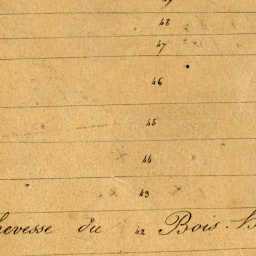 48
47
46
45
44
43
du 42 Bois